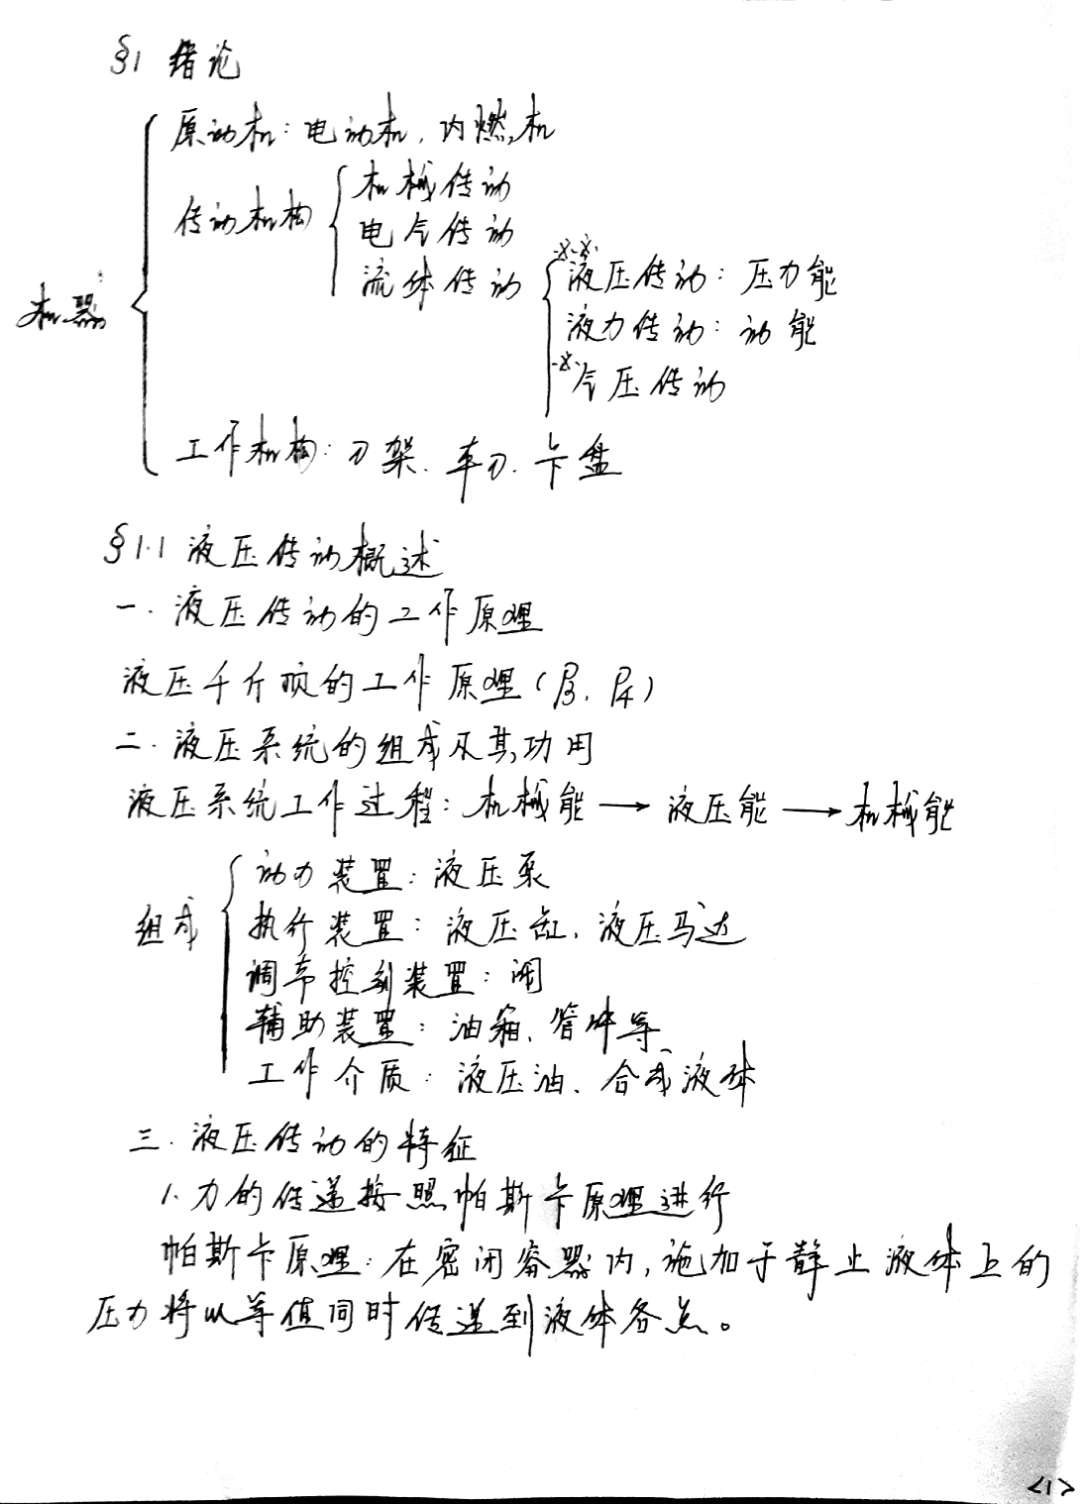 §1 绪论
原动机：电动机、内燃机
传动机构
机械传动
电气传动
流体传动
※※液压传动：压力能
液力传动：动能
※气压传动
机器
工作机构：刀架、车刀、卡盘
§1.1 液压传动概述
一. 液压传动的工作原理
液压千斤顶的工作原理（P3、P4）
二. 液压系统的组成及其功用
液压系统工作过程：机械能 → 液压能 → 机械能
组成
动力装置：液压泵
执行装置：液压缸、液压马达
调节控制装置：阀
辅助装置：油箱、管件等
工作介质：液压油、合成液体
三. 液压传动的特征
1. 力的传递按照帕斯卡原理进行
帕斯卡原理：在密闭容器内，施加于静止液体上的
压力将以等值同时传递到液体各点。
<1>